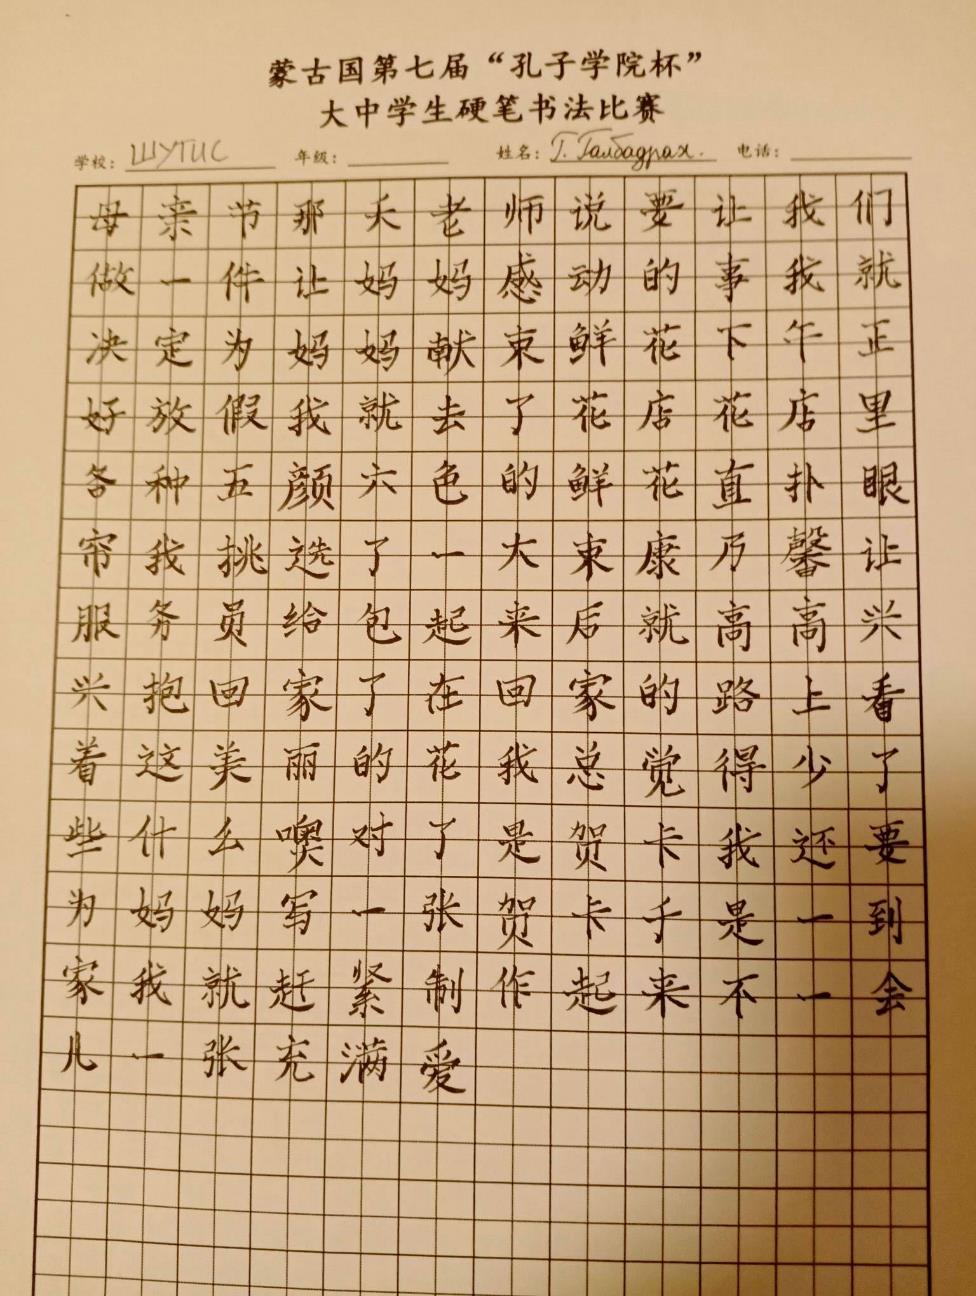 蒙古国第七届“孔子学院杯”
大中学生硬笔书法比赛
学校：ШУТИС 年级： 姓名：Г. Галбадрах. 电话：
母亲节那天老师说要让我们
做一件让妈妈感动的事我就
决定为妈妈献束鲜花下午正
好放假我就去了花店花店里
各种五颜六色的鲜花直扑眼
帘我挑选了一大束康乃馨让
服务员给包起来后就高高兴
兴抱回家了在回家的路上看
着这美丽的花我总觉得少了
些什么噢对了是贺卡我还要
为妈妈写一张贺卡于是一到
家我就赶紧制作起来不一会
儿一张充满爱